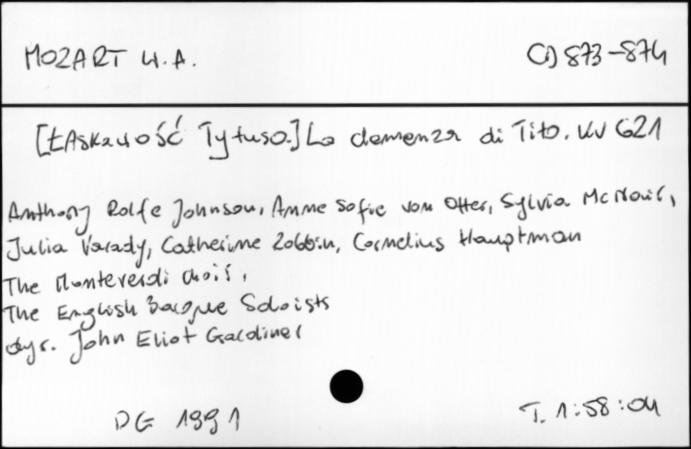 MOZART W.A.
CD 873-874
[Łaskawość Tytusa.] La clemenza di Tito. KV 621
Anthony Rolfe Johnson, Anne Sofie von Otter, Sylvia McNair,
Julia Varady, Catherine Robbin, Cornelius Hauptman
The Monteverdi Choir,
The English Baroque Soloists
dyr. John Eliot Gardiner
DG 1991
T. 1:58:04